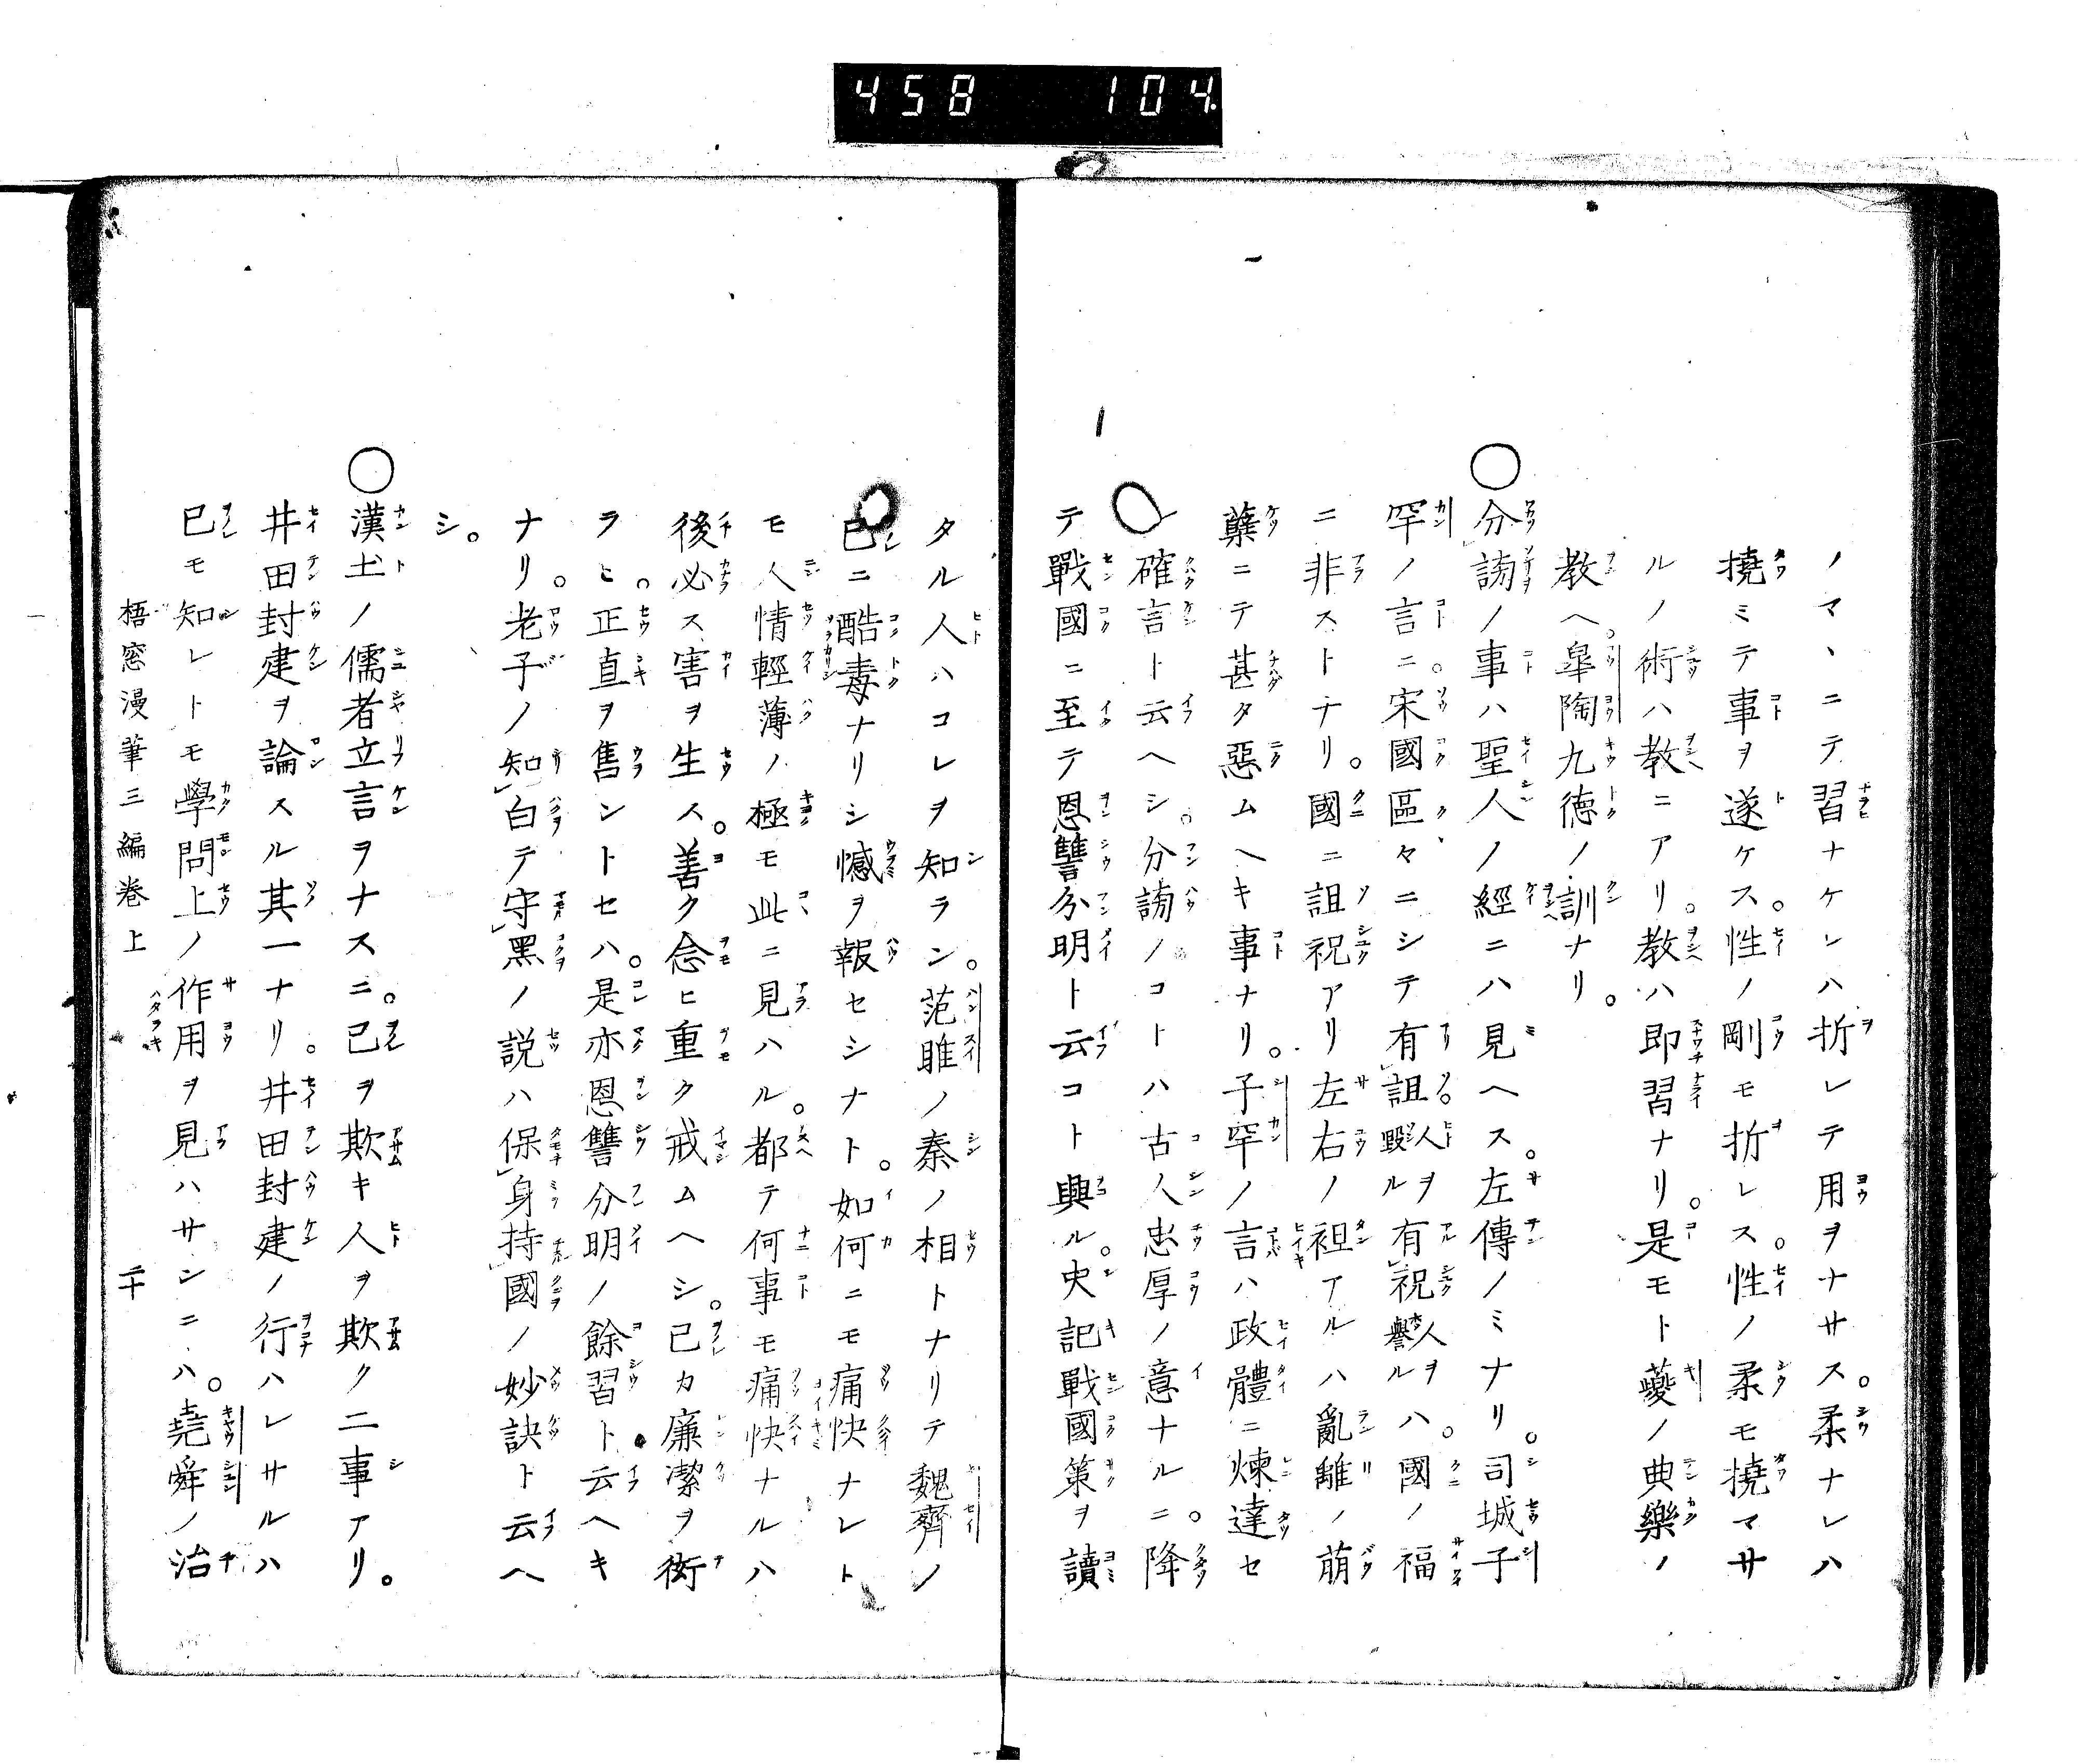 458 104
ノマヽニテ習ナケレハ折レテ用ヲナサス。柔ナレハ
撓ミテ事ヲ遂ケス。性ノ剛モ折レス。性ノ柔モ撓マサ
ルノ術ハ教ニアリ。教ハ即習ナリ。是モト夔ノ典樂ノ
教ヘ。皐陶九德ノ訓ナリ。
○分謗ノ事ハ聖人ノ經ニハ見ヘス。左傳ノミナリ。司城子
罕ノ言ニ。宋國區々ニシテ有詛人ヲ毀ル有祝人ヲ譽ルハ。國ノ福
ニ非ストナリ。國ニ詛祝アリ左右ノ袒アルハ亂離ノ萠
蘖ニテ甚タ惡ムヘキ事ナリ。子罕ノ言ハ政體ニ煉達セ
○確言ト云ヘシ。分謗ノコトハ古人忠厚ノ意ナルニ。降
テ戰國ニ至テ恩讐分明ト云コト興ル。史記戰國策ヲ讀
タル人ハコレヲ知ラン。范雎ノ秦ノ相トナリテ魏齊ノ
已ニ酷毒ナリシ憾ヲ報セシナト。如何ニモ痛快ナレト
モ人情輕薄ノ極モ此ニ見ハル。都テ何事モ痛快ナルハ
後必ス害ヲ生ス。善ク念ヒ重ク戒ムヘシ。己カ廉潔ヲ衒
ラヒ。正直ヲ售ントセハ。是亦恩讐分明ノ餘習ト云ヘキ
ナリ。老子ノ知白テ守黑ノ説ハ保身持國ノ妙訣ト云ヘ
シ。
○漢土ノ儒者立言ヲナスニ。己ヲ欺キ人ヲ欺ク二事アリ。
井田封建ヲ論スル其一ナリ。井田封建ノ行ハレサルハ
己モ知レトモ學問上ノ作用ヲ見ハサンニハ。堯舜ノ治
梧窓漫筆三編卷上 二十